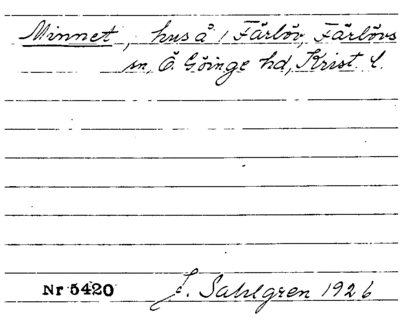 Minnet, hus å 1 Färlöv, Färlövs
sn, Ö. Göinge hd, Krist. l.
Nr 5420 J. Sahlgren 1926